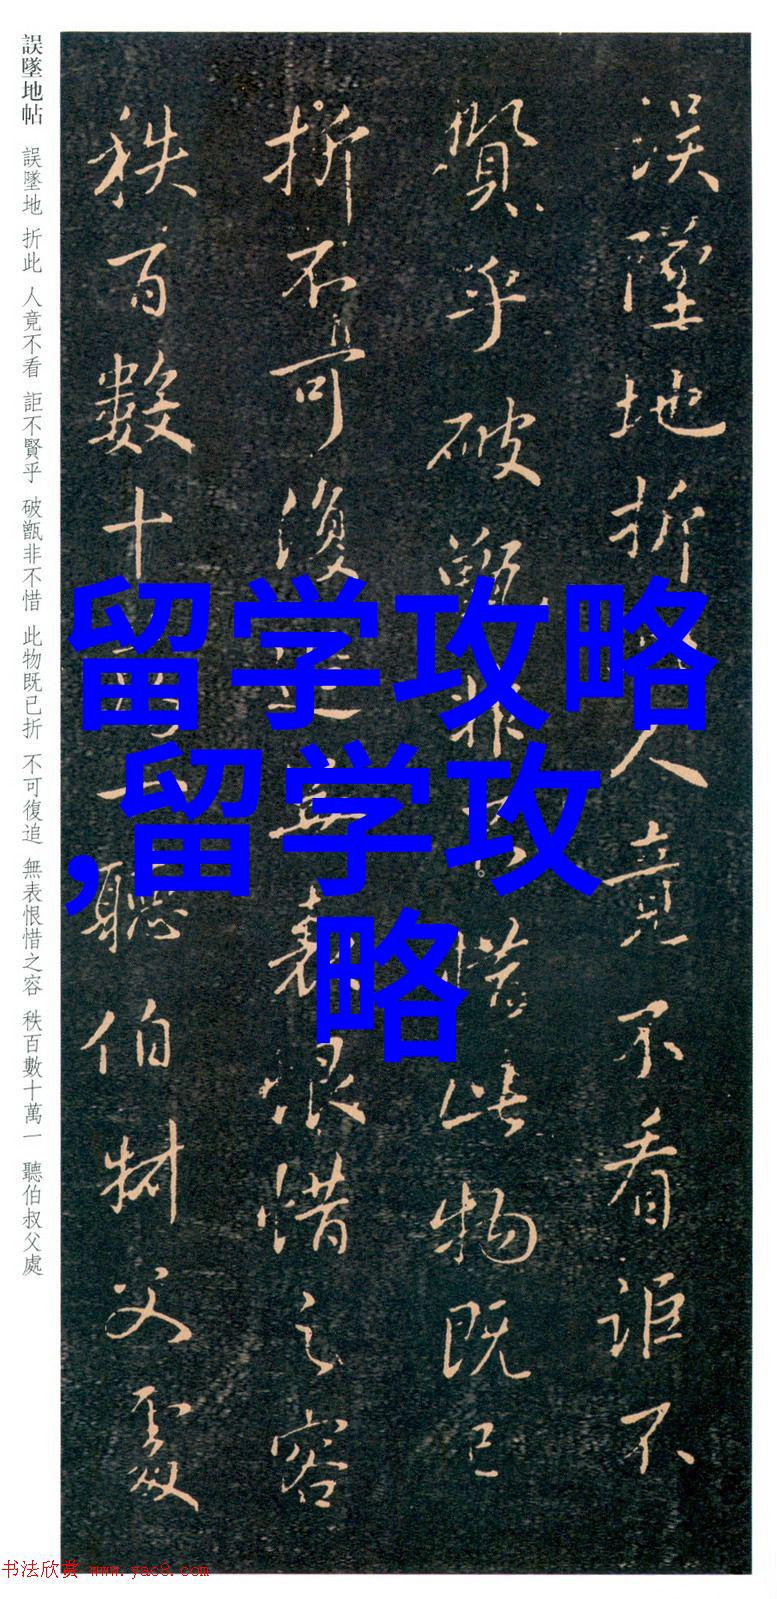 誤墜地折此人竟不看詎不
賢乎破甑非不惜此物既已
折不可復追無表恨惜之容
秩百數十萬一聽伯叔父處
誤墜地帖 誤墜地 折此 人竟不看 詎不賢乎 破甑非不惜 此物既已折 不可復追 無表恨惜之容 秩百數十萬一 聽伯叔父處
留学攻略
,留学攻
略
书法欣赏 www.yac8.com